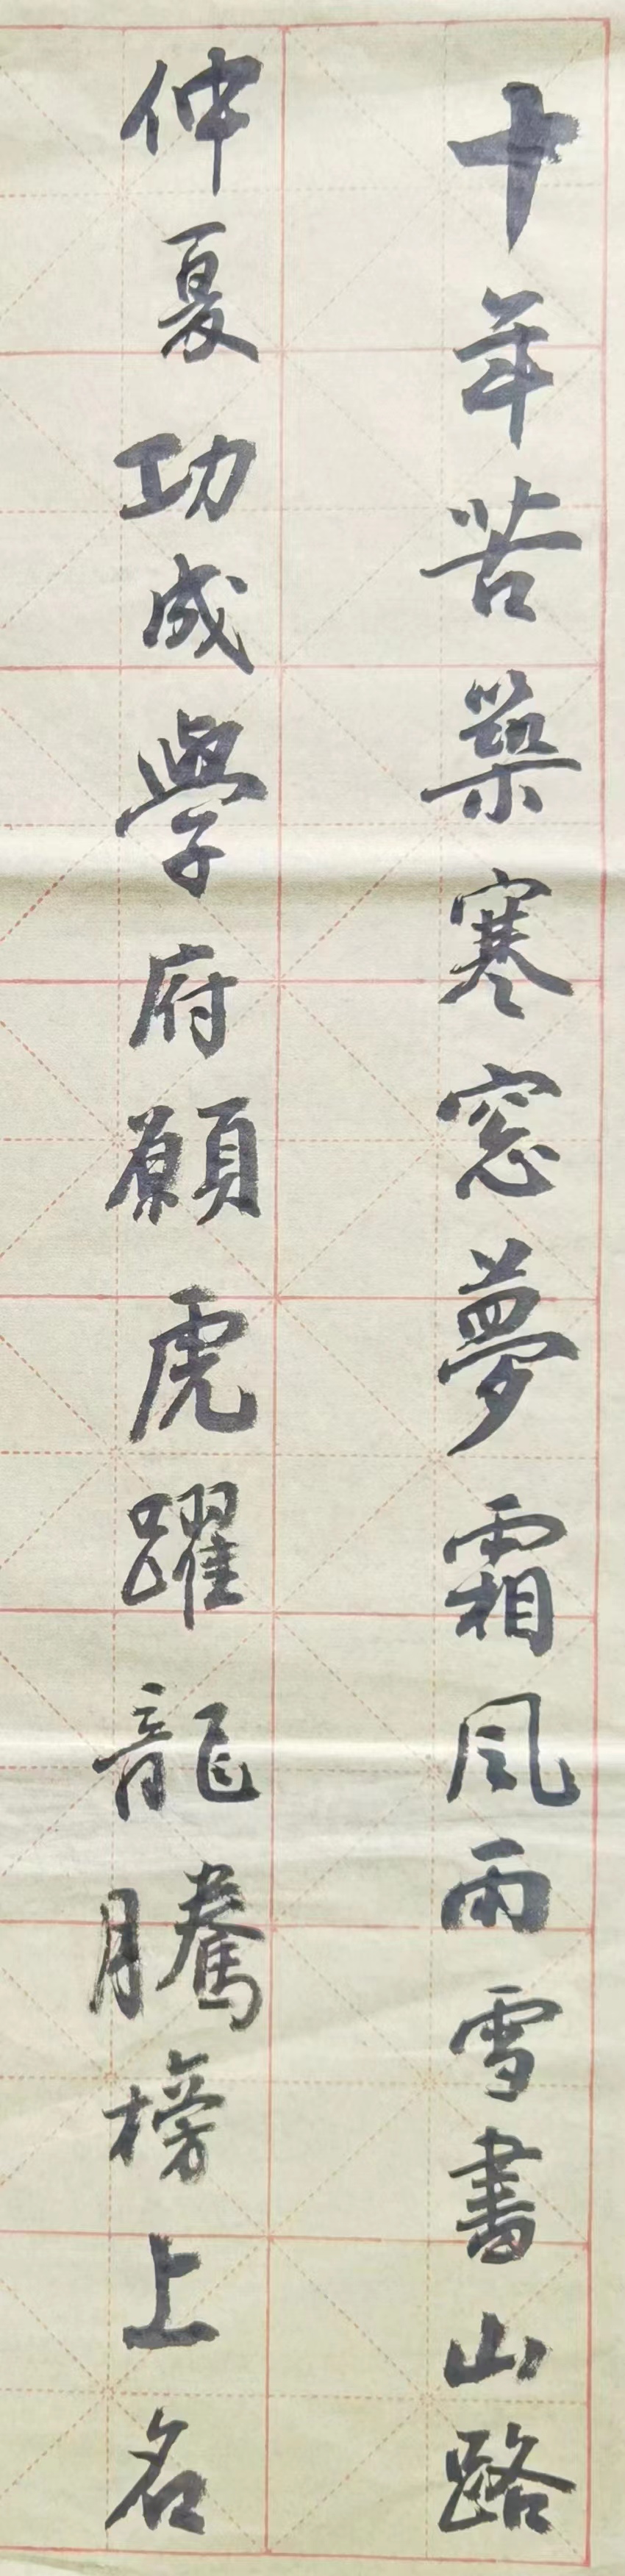 十年苦築寒窓夢霜風雨雪書山路
仲夏功成學府願虎躍龍騰榜上名